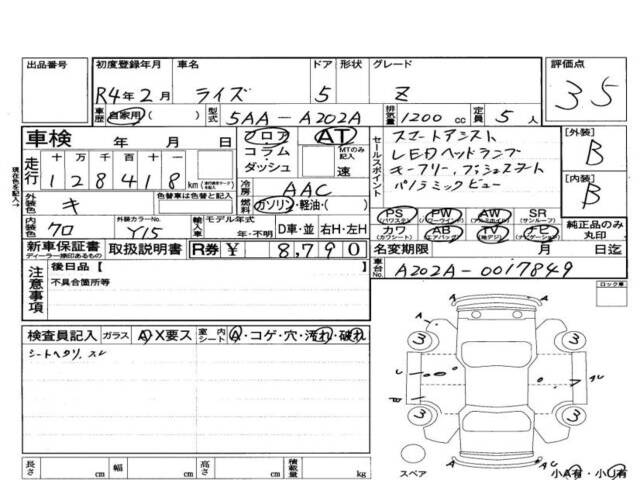 出品番号 初度登録年月 車名 ドア 形状 グレード 評価点
R4年2月 ライズ 5 Z 35
車歴 自家用 ( ) 型式 5AA-A202A 排気量 1200 cc 定員 5 人
車検 年 月 日 フロア AT スマートアシスト [外装]
走行 十 万 千 百 十 一 コラム・ダッシュ MTのみ記入 速 セールスポイント LEDヘッドランプ B
1 2 8 4 1 8 km キーフリー、プッシュスタート
冷房 AAC パノラミックビュー [内装]
外装色 キ 色替車は色替色 ( ) 燃料 ガソリン・軽油・( ) B
内装色 クロ 外装カラーNo. Y15 輸入車 モデル年式 年・不明 D車・並 右H・左H
PS (パワステ) PW (パワーウィンド) AW (アルミホイル) SR (サンルーフ) 純正品のみ丸印
カワ (カワシート) AB (エアバッグ) TV (地デジ) ナビ (ナビゲーション)
新車保証書 ディーラー捺印あるもの 取扱説明書 R券 ¥ 8,790 名変期限 月 日迄
車台No. A202A-0017849
注意事項 後日品【 】
不具合箇所等
ロック車
検査員記入 ガラス A X要ス 室内シート A・コゲ・穴・汚れ・破れ
シートヘタリ、スレ
A
3 3
A U
3 3
A
長さ cm 幅 cm 高さ cm 積載量 kg スペア 小A有・小U有